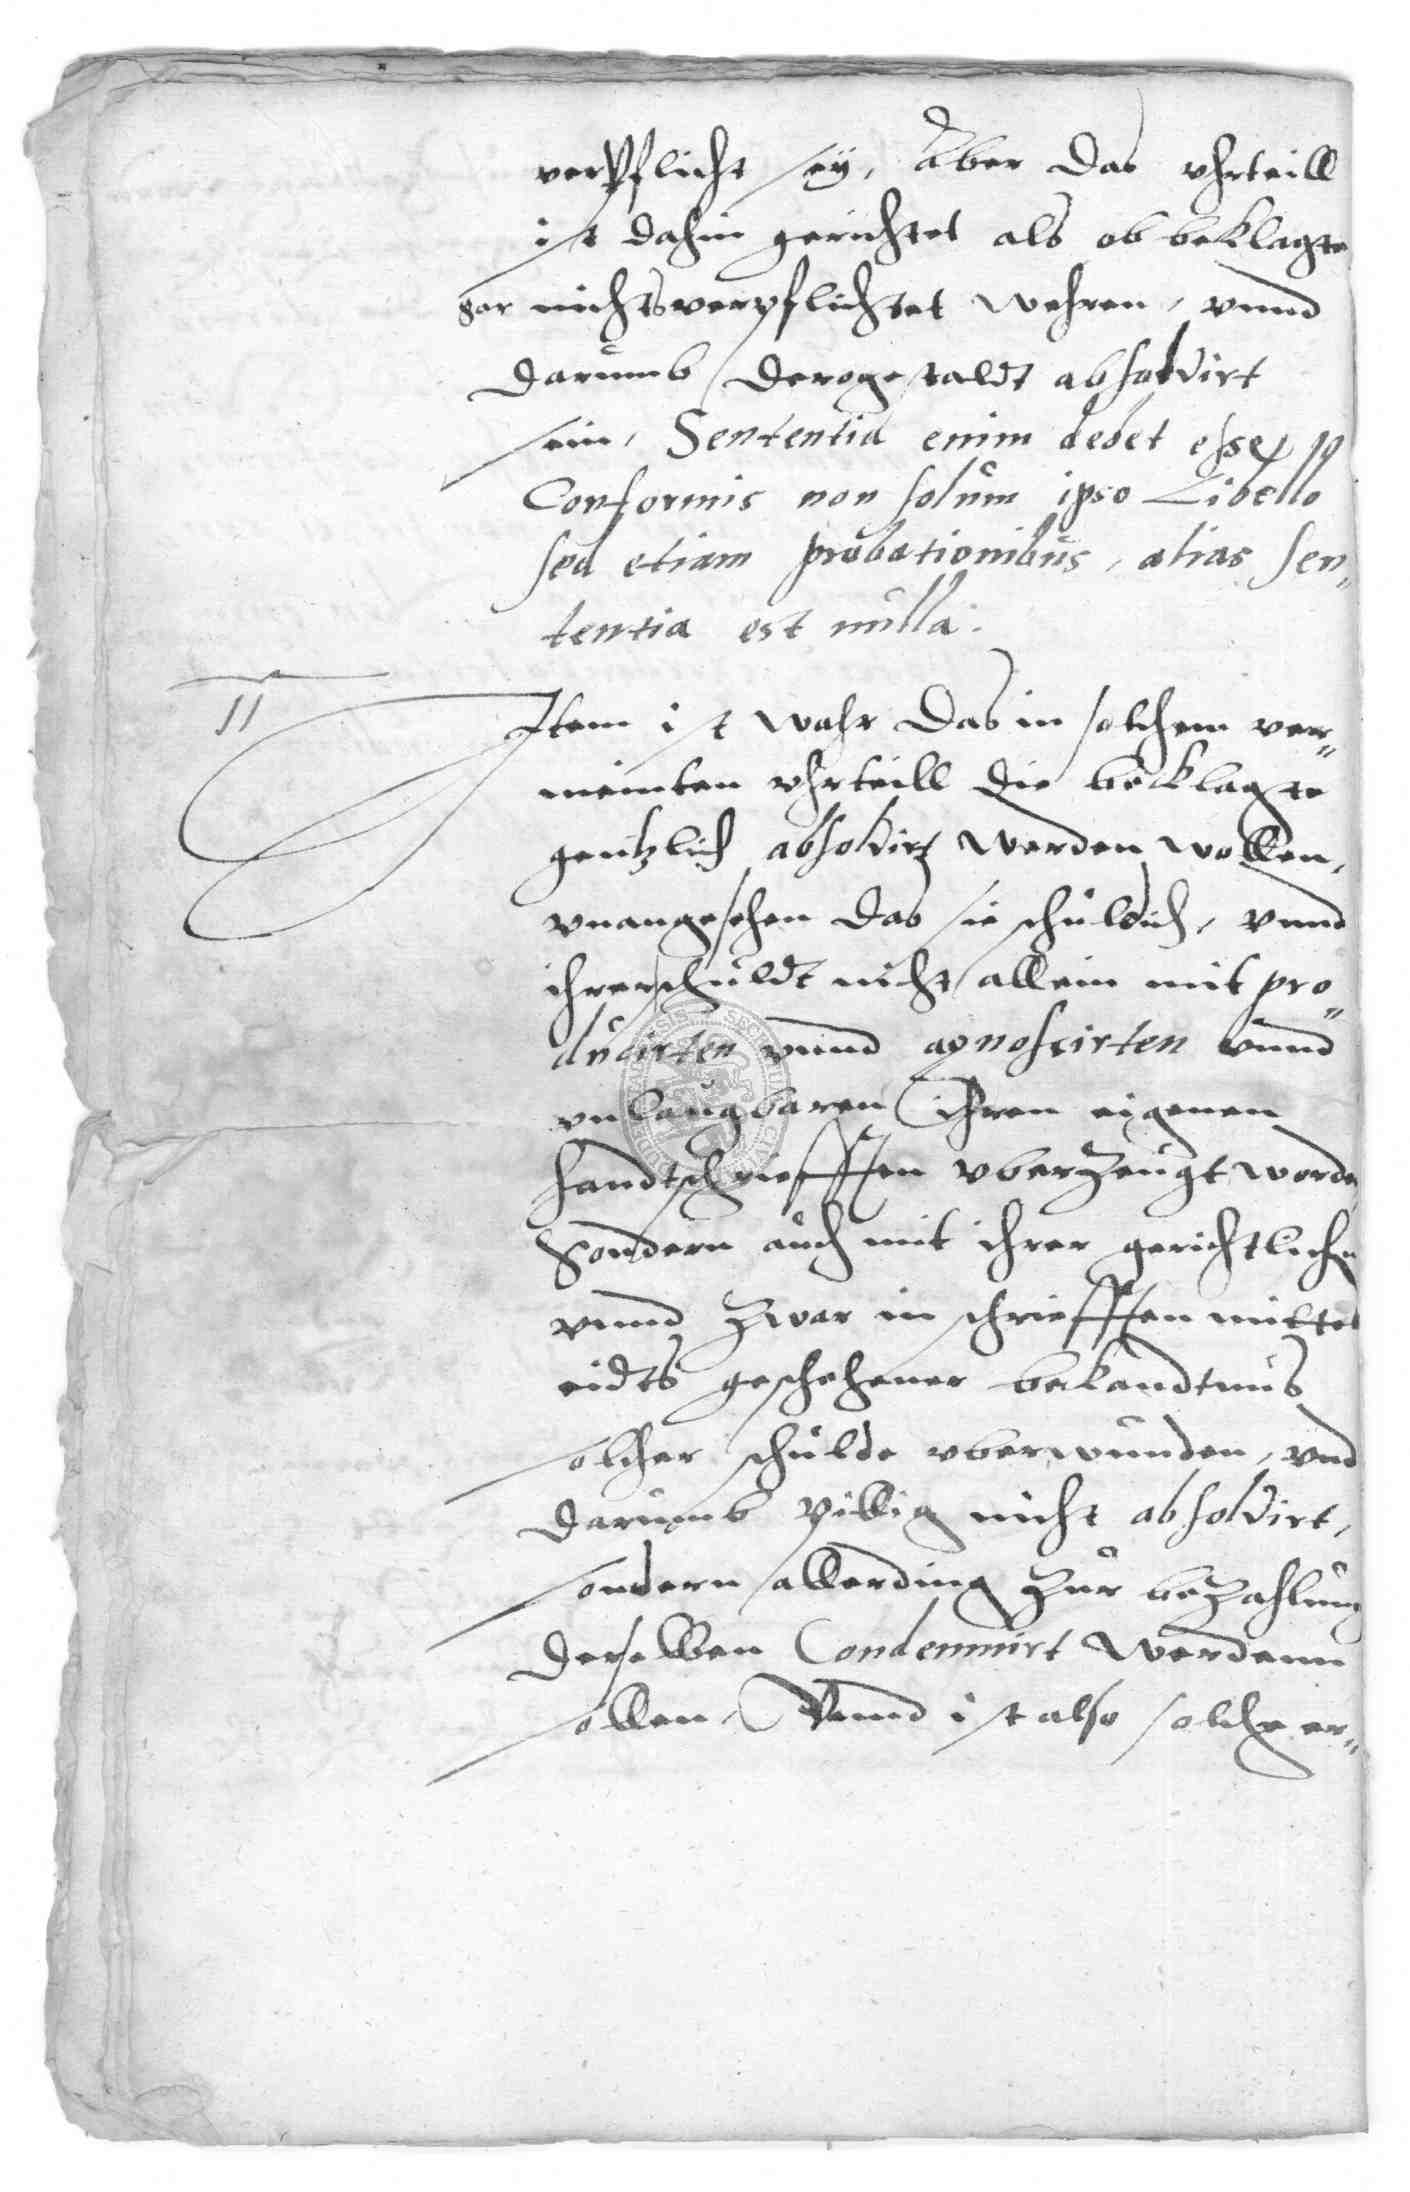 verpflicht sey, Aber das vhrteill
ist dahin gerichtet als ob beklagte
gar nichts verpflichtet wehren, vnnd
darumb derogestaldt absolvirt
sein, Sententia enim debet esse
Conformis non solum ipso Libello
sed etiam probationibus, alias Sen„
tentia est nulla.
11
Item ist wahr das in solchem ver„
meinten vhrteill die beklagte
gentzlich absolvirt werden wollen,
vnangesehen das sie schuldich, vnnd
ihrer schuldt nicht allein mit pro„
ducirten vnnd agnoscirten vnnd
vnlaugbaren ihren eigenen
handtschriefften vberzeugt worden
Sondern auch mit ihrer gerichtlichen
vnnd zwar in schriefften mittel
eidts geschehener bekandtnus
solcher schulde vberwunden, vnd
darumb pillig nicht absolvirt,
sondern allerding zur bezahlung
derselben Condemnirt werdenn
sollen, Vnnd ist also solche er„